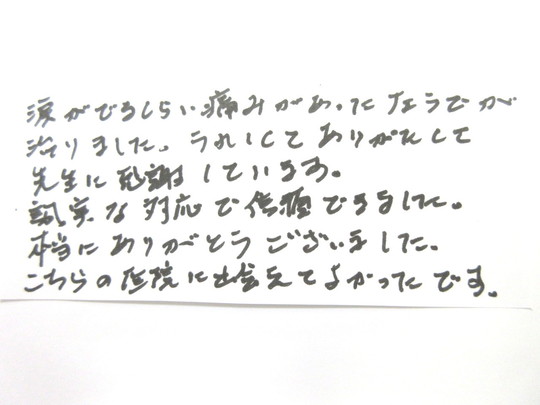 涙がでるくらい痛みがあった なうでが
治りました。うれしくて ありがたくて
先生に感謝しています。
誠実な対応で信頼できました。
本当にありがとうございました。
こちらの医院に出会えてよかったです。